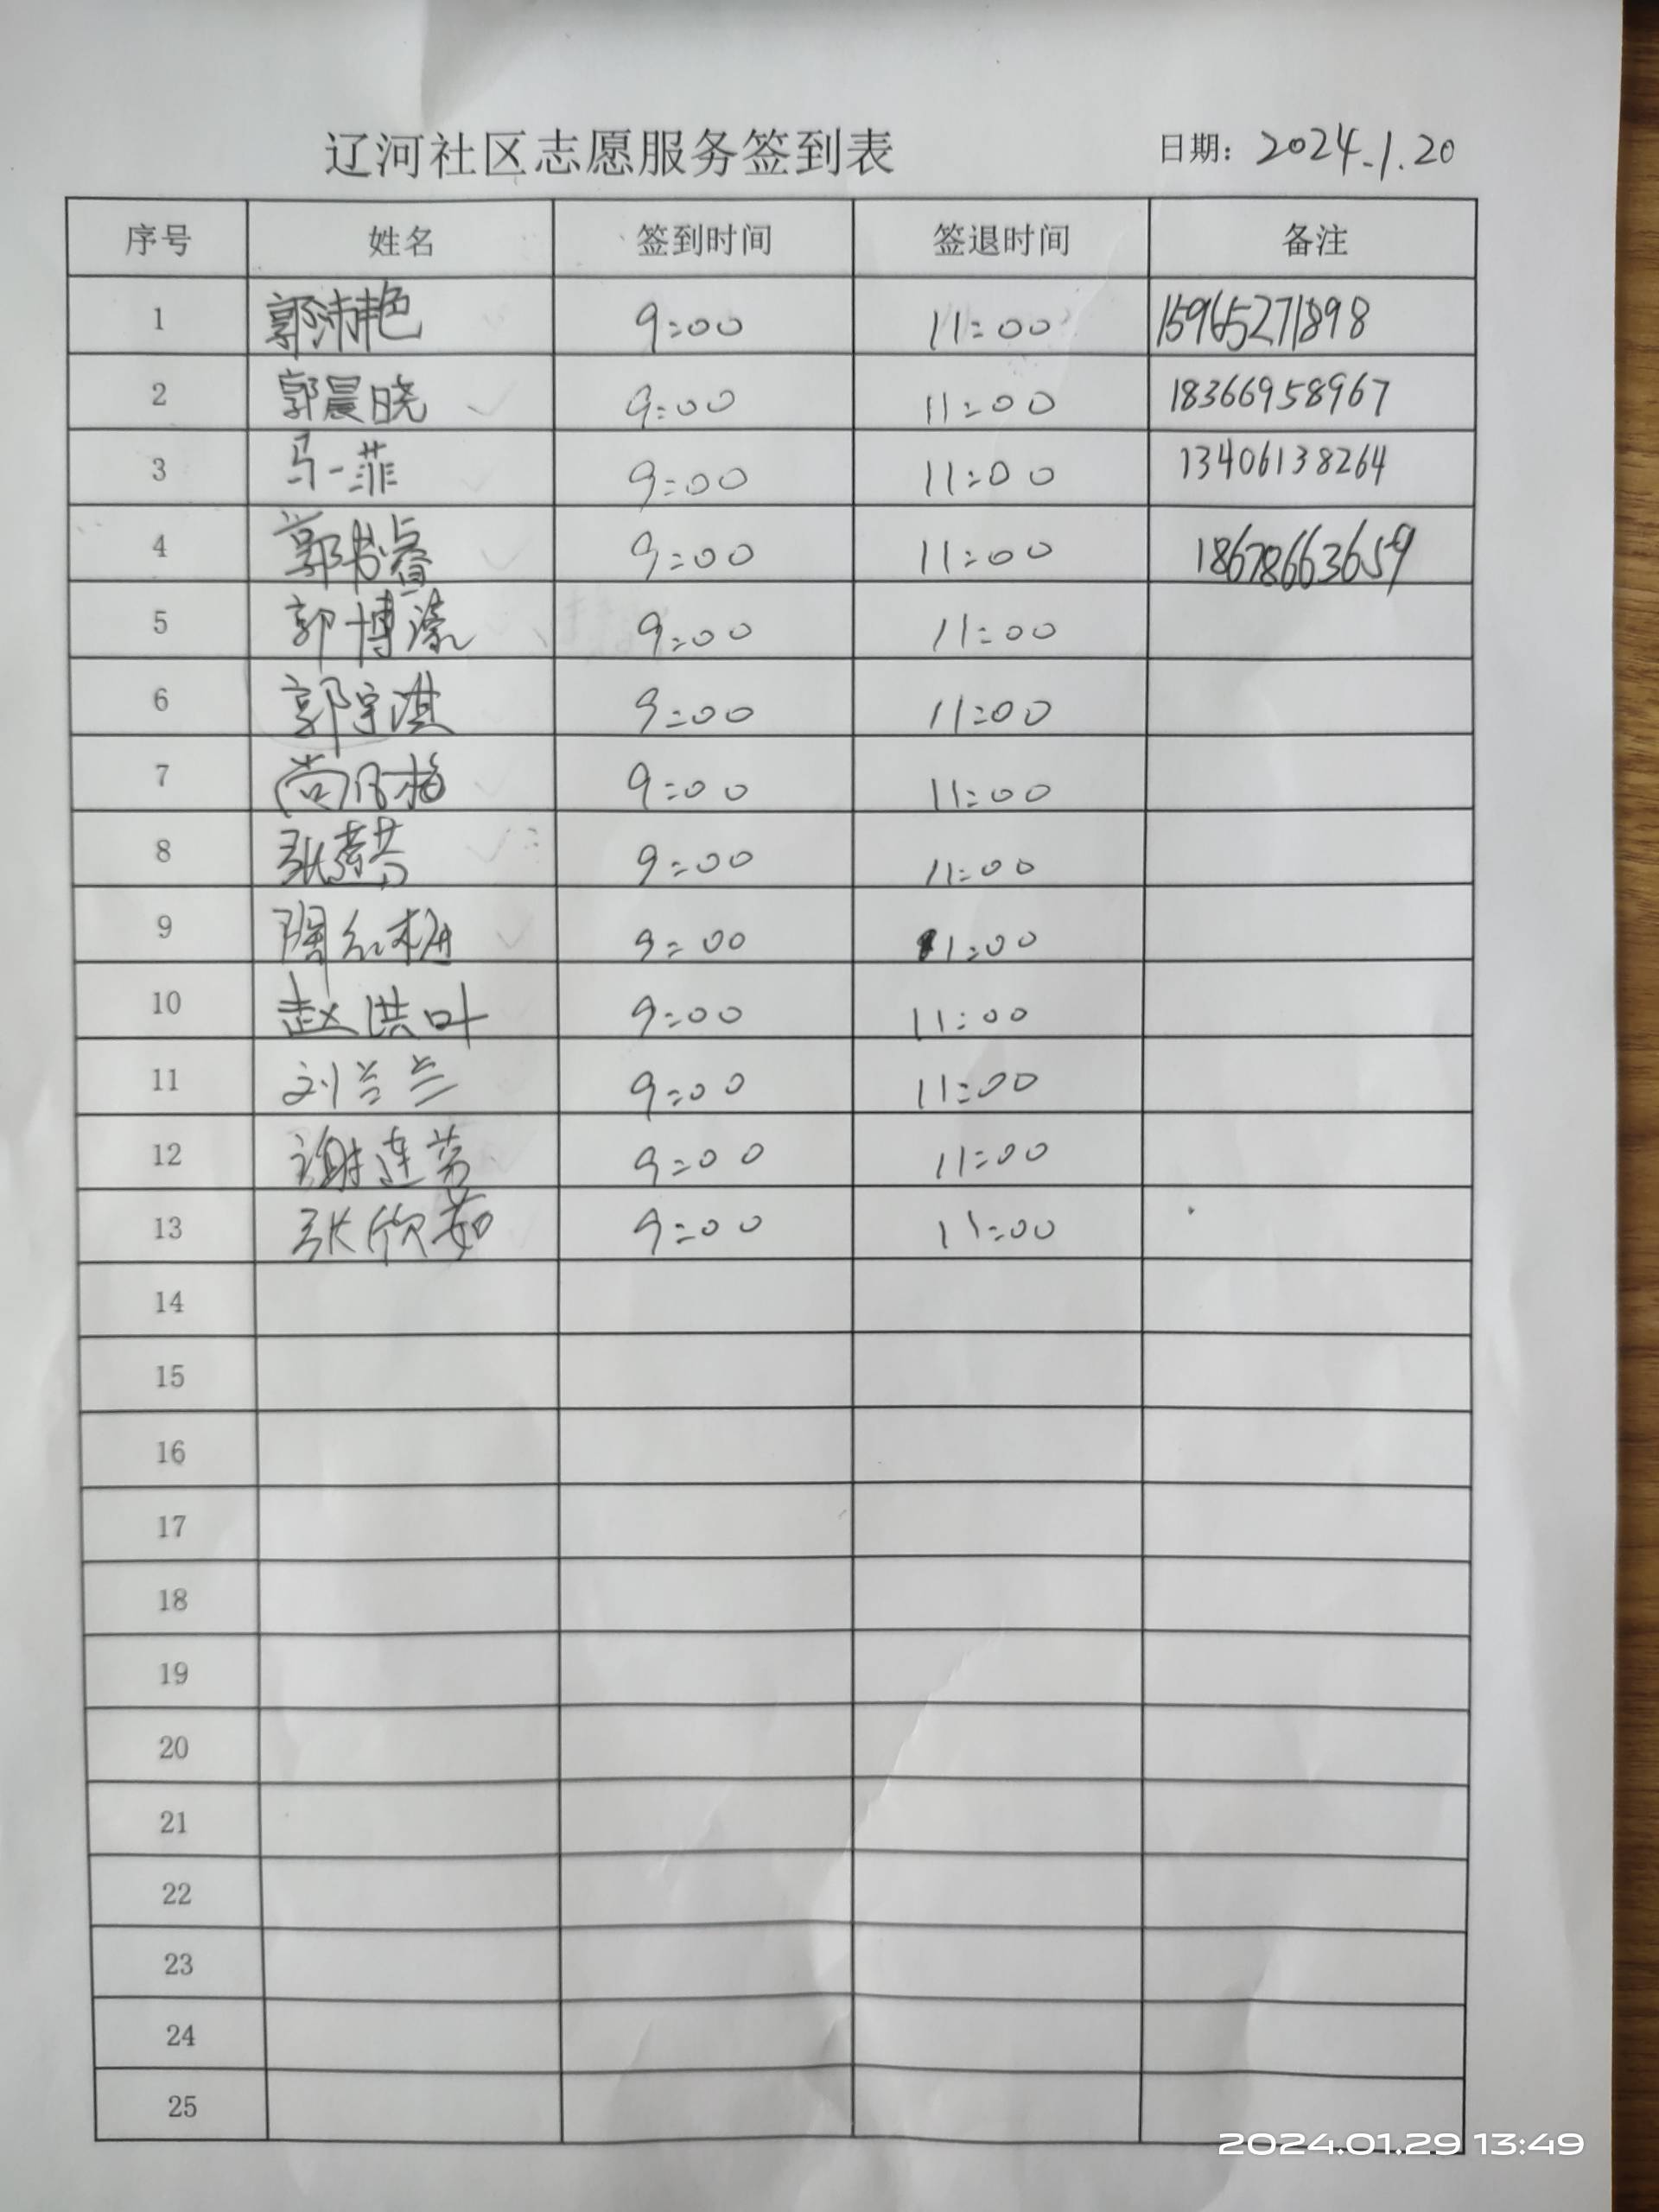 辽河社区志愿服务签到表 日期：2024.1.20
序号 姓名 签到时间 签退时间 备注
1 郭沛艳 9:00 11:00 15965271898
2 郭晨晓 9:00 11:00 18366958967
3 马一菲 9:00 11:00 13406138264
4 郭书睿 9:00 11:00 18678663659
5 郭博濠 9:00 11:00
6 郭宇淇 9:00 11:00
7 9:00 11:00
8 9:00 11:00
9 9:00 11:00
10 赵洪叶 9:00 11:00
11 刘兰兰 9:00 11:00
12 谢连芳 9:00 11:00
13 张欣茹 9:00 11:00
14
15
16
17
18
19
20
21
22
23
24
25
2024.01.29 13:49